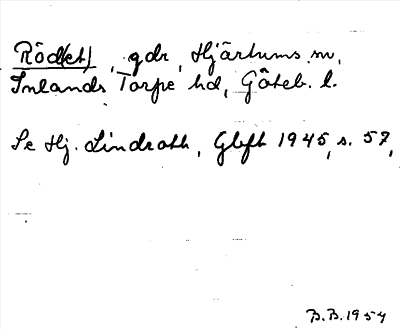 Röd(et), gdr, Hjärtums sn,
Inlands Torpe hd, Göteb. l.
Se Hj. Lindroth, Gbft 1945, s. 57,
B.B. 1954